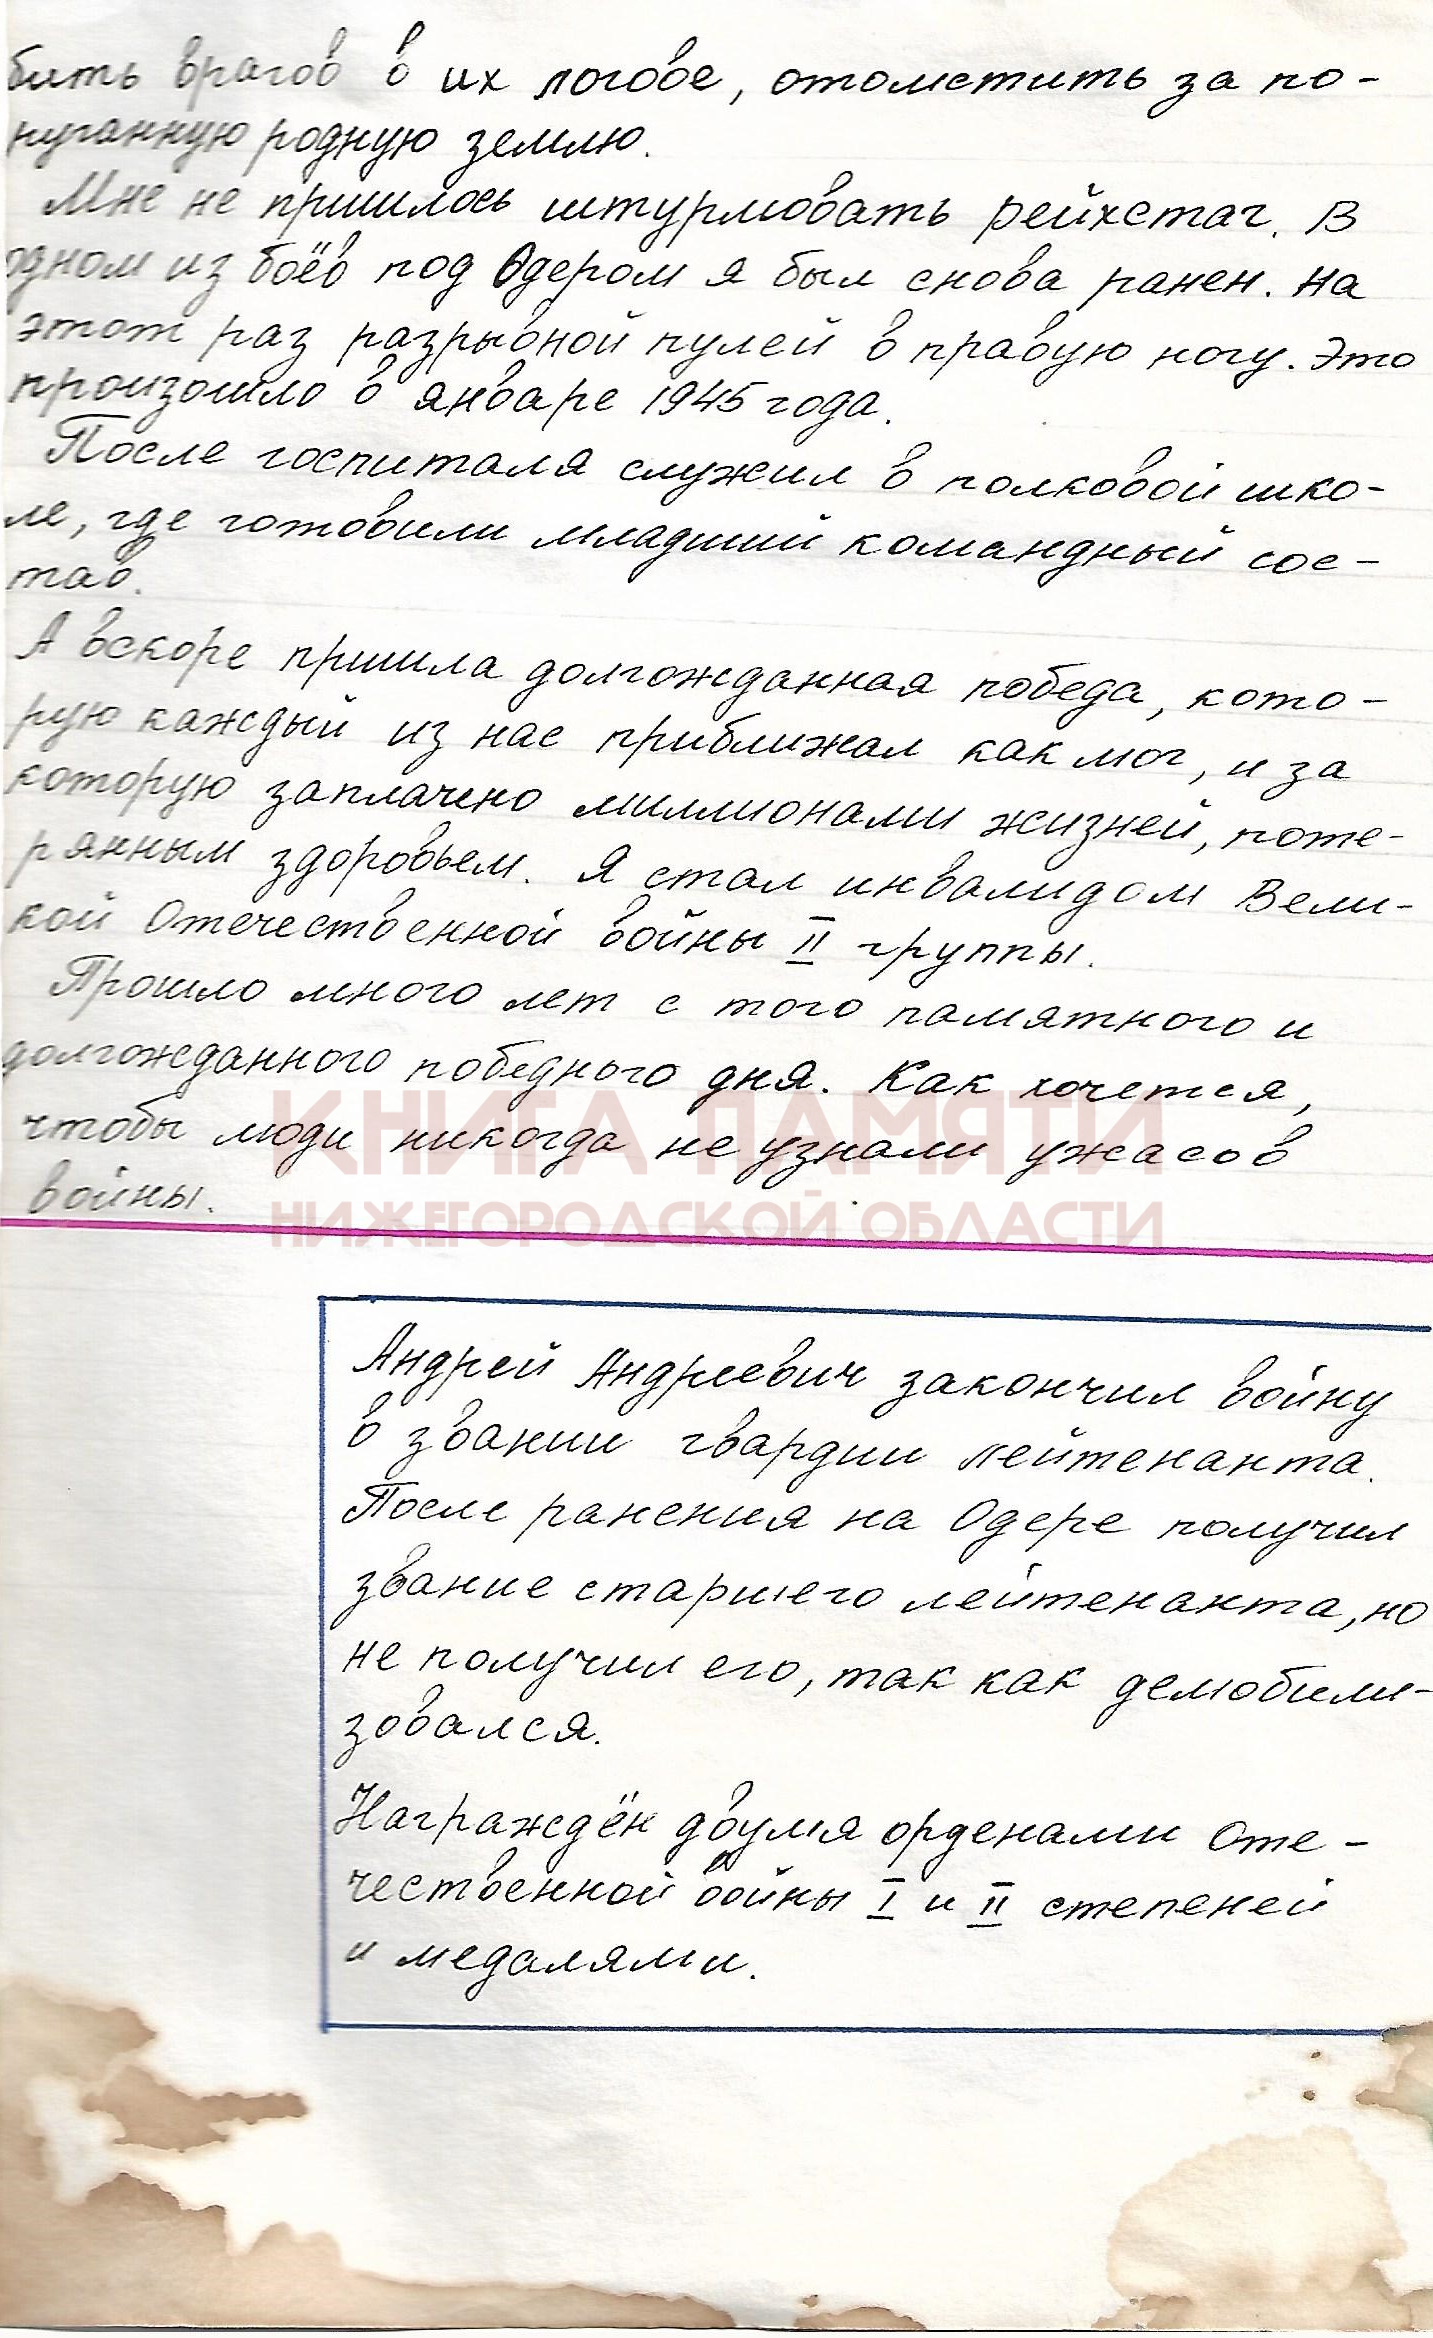 бить врагов в их логове, отомстить за по-
руганную родную землю.
Мне не пришлось штурмовать рейхстаг. В
одном из боёв под Одером я был снова ранен. На
этот раз разрывной пулей в правую ногу. Это
произошло в январе 1945 года.
После госпиталя служил в полковой шко-
ле, где готовили младший командный сос-
тав.
А вскоре пришла долгожданная победа, кото-
рую каждый из нас приближал как мог, и за
которую заплачено миллионами жизней, поте-
рянным здоровьем. Я стал инвалидом Вели-
кой Отечественной войны II группы.
Прошло много лет с того памятного и
долгожданного победного дня. Как хочется,
чтобы люди никогда не узнали ужасов
войны.
КНИГА ПАМЯТИ
НИЖЕГОРОДСКОЙ ОБЛАСТИ
Андрей Андреевич закончил войну
в звании гвардии лейтенанта.
После ранения на Одере получил
звание старшего лейтенанта, но
не получил его, так как демобили-
зовался.
Награждён двумя орденами Оте-
чественной войны I и II степеней
и медалями.